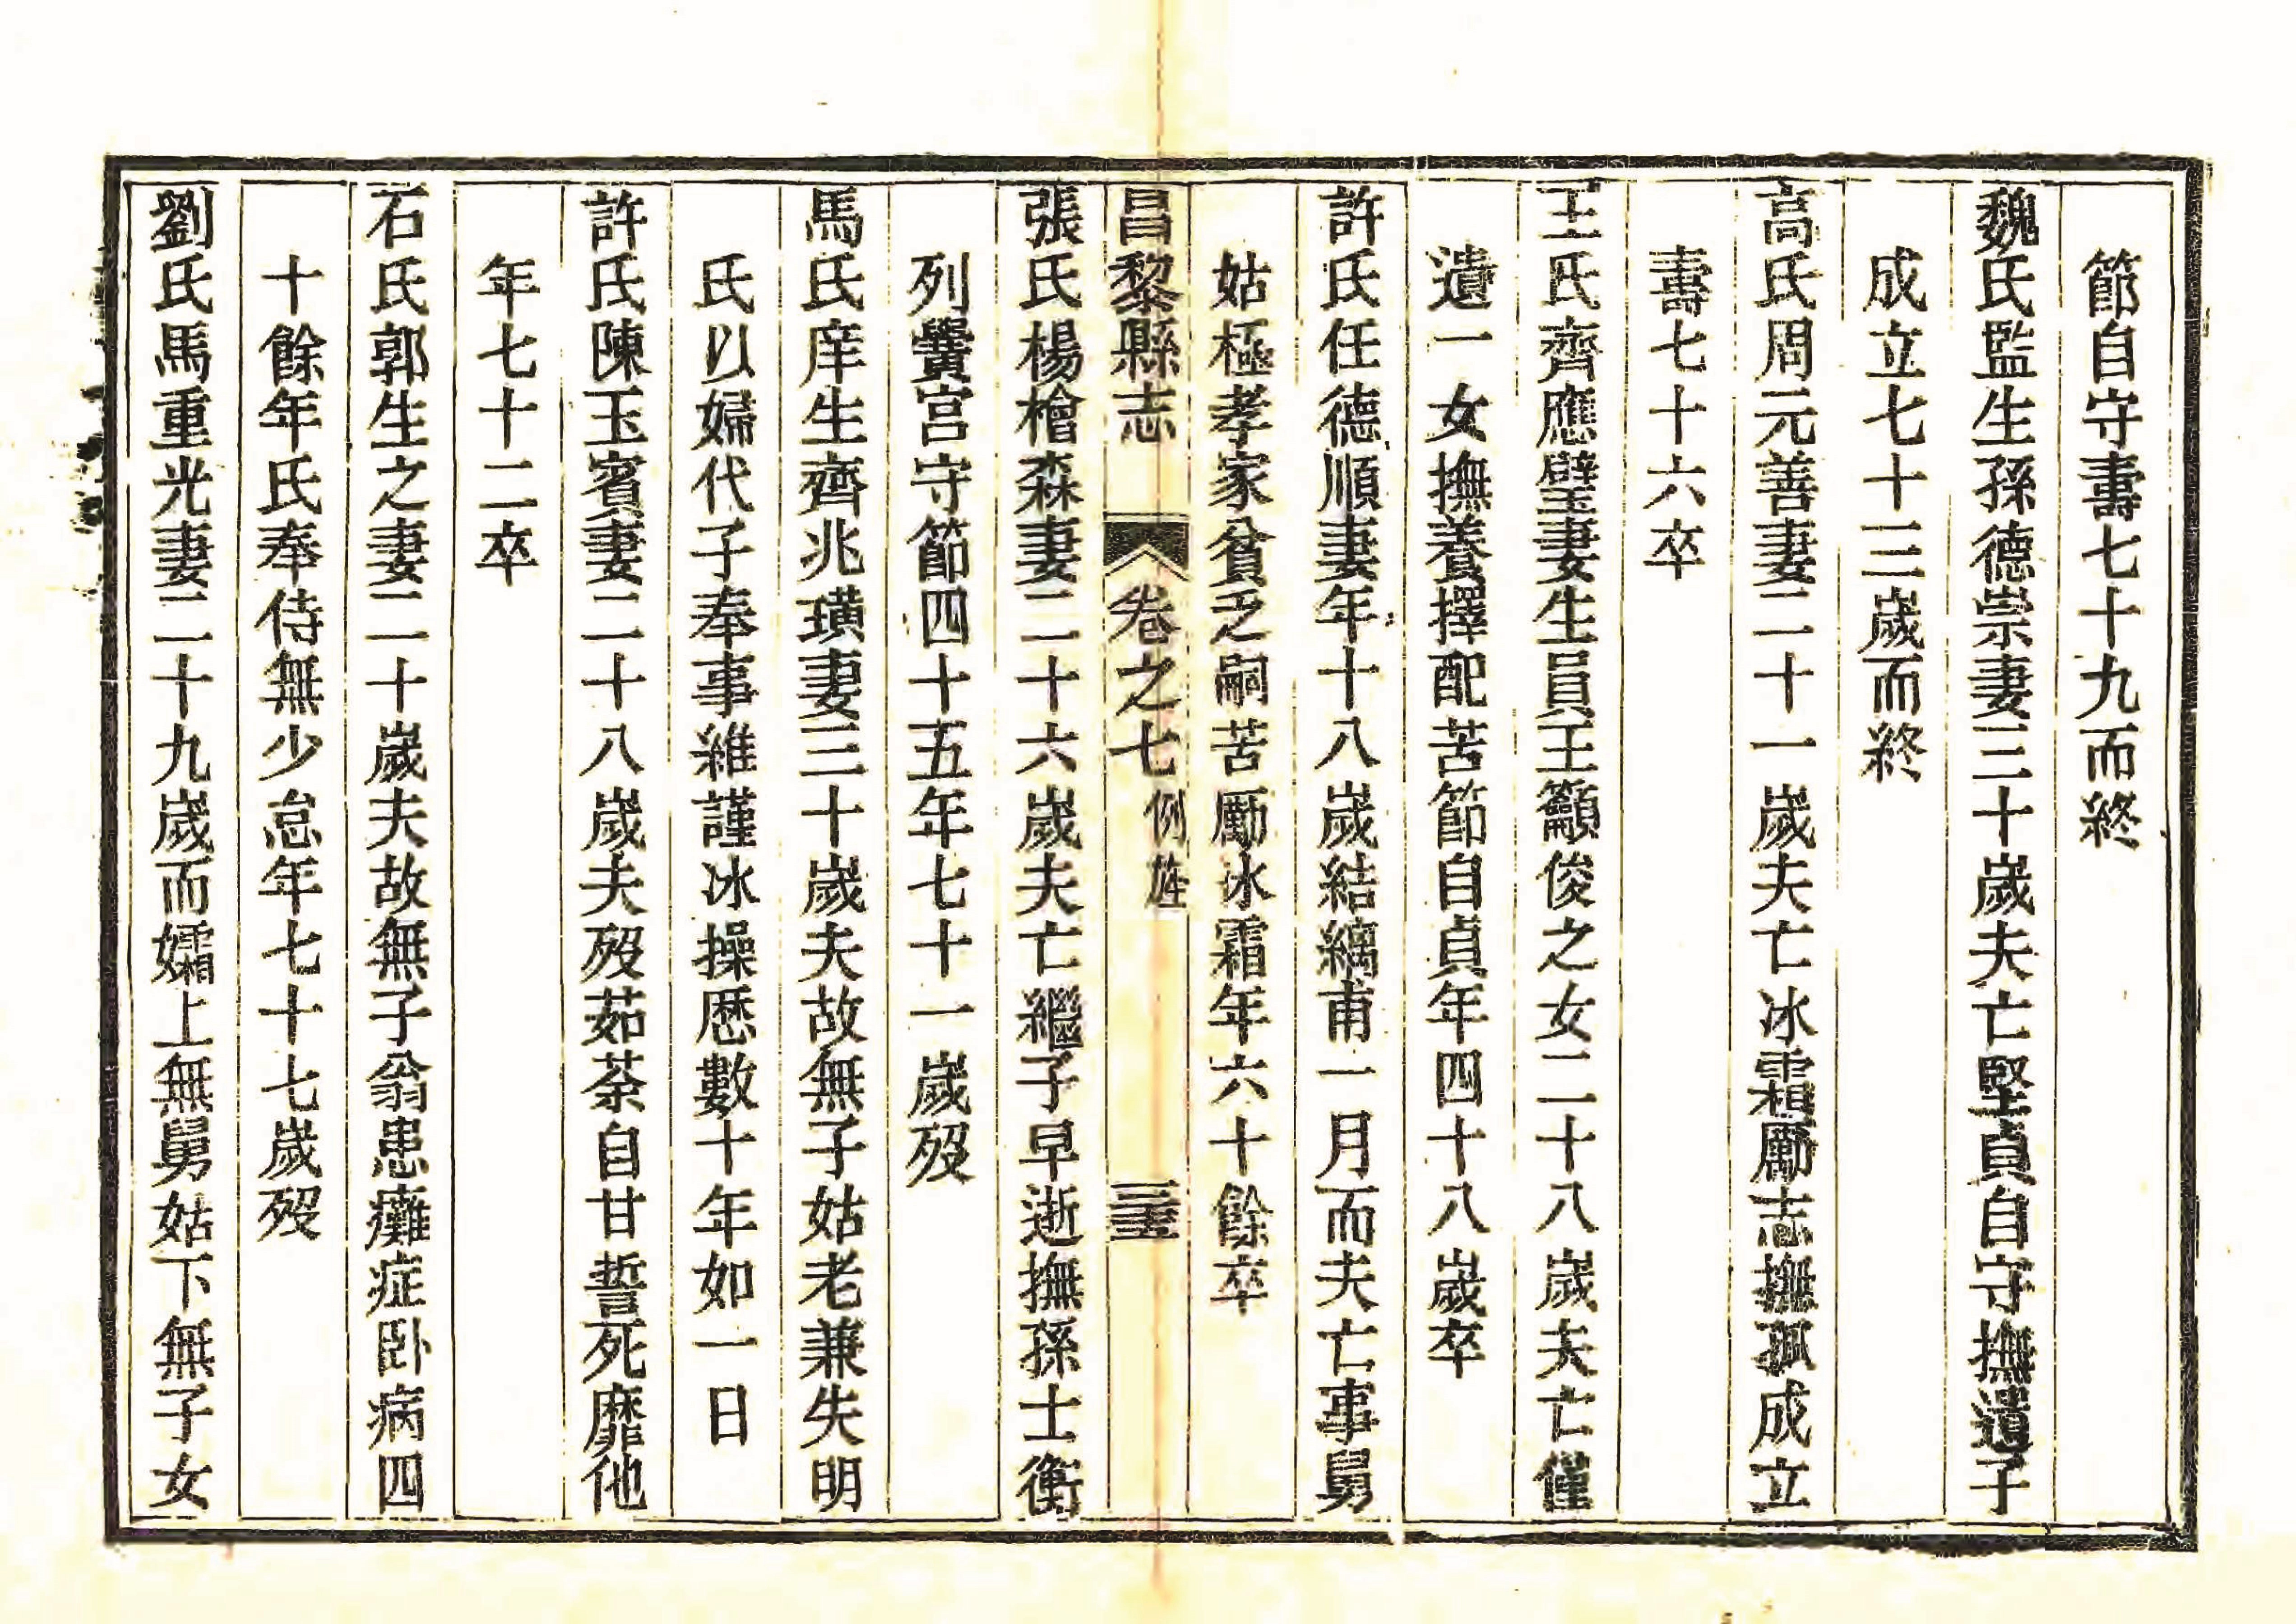 節自守壽七十九而終
魏氏監生孫德崇妻三十歲夫亡堅貞自守撫遺子
成立七十三歲而終
高氏周元善妻二十一歲夫亡冰霜勵志撫孤成立
壽七十六卒
王氏齊應璧妻生員王籲俊之女二十八歲夫亡僅
遺一女撫養擇配苦節自貞年四十八歲卒
許氏任德順妻年十八歲結縭甫一月而夫亡事舅
姑極孝家貧乏嗣苦勵冰霜年六十餘卒
昌黎縣志 卷之七 例旌 三五
張氏楊檜森妻二十六歲夫亡繼子早逝撫孫士衡
列黌宮守節四十五年七十一歲歿
馬氏庠生齊兆璜妻三十歲夫故無子姑老兼失明
氏以婦代子奉事維謹冰操歷數十年如一日
許氏陳玉賓妻二十八歲夫歿茹荼自甘誓死靡他
年七十二卒
石氏郭生之妻二十歲夫故無子翁患癱症卧病四
十餘年氏奉侍無少怠年七十七歲歿
劉氏馬重光妻二十九歲而孀上無舅姑下無子女